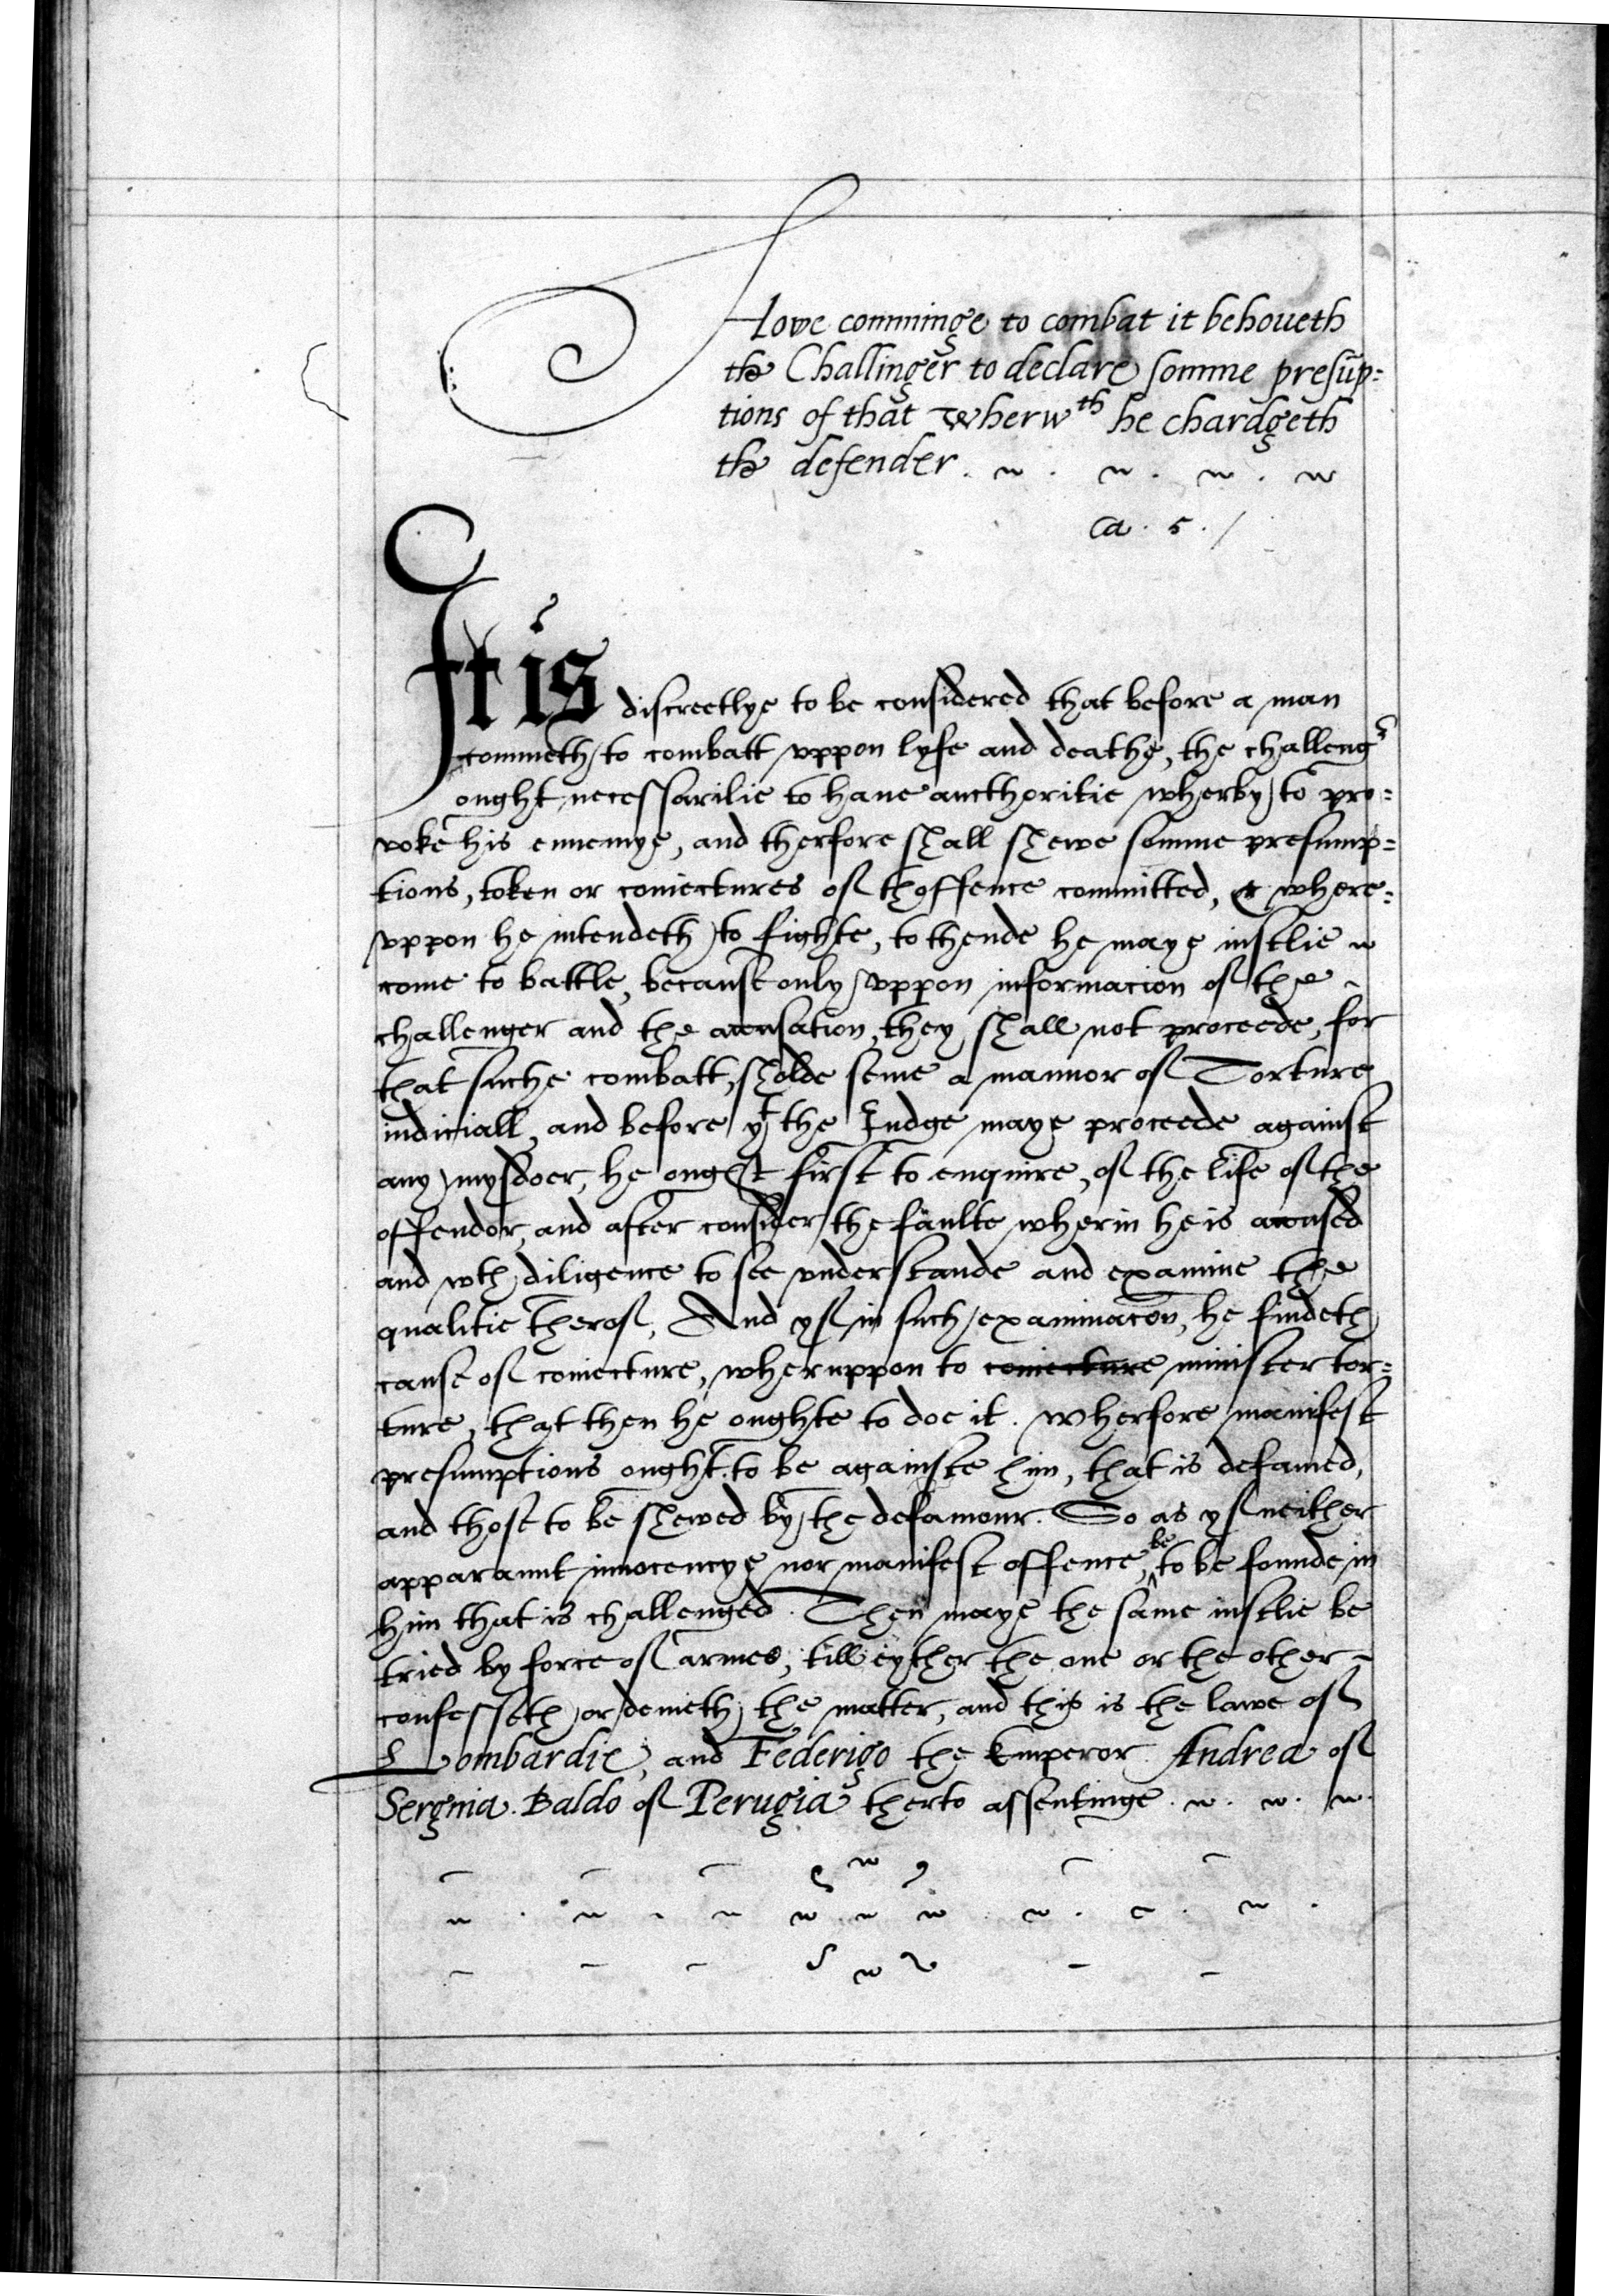 Howe comminge to combat it behoueth
the Challinger to declare somme presūp=
tions of that wherwth he chardgeth
the defender.
Ca. 5. /
It is discreetlye to be considered that before a man
commeth to combatt vppon lyfe and deathe, the challengr
ought necessarilie to haue aucthoritie wherby to pro=
voke his ennemye, and therfore shall shewe somme presump=
tions, token or coniectures of thoffence committed, & where=
vppon he intendeth to fighte, to thende he maye iustlie
come to battle, because only vppon informacion of the
challenger and the accusation, they shall not proceede, for
that suche combatt, sholde seme a mannor of Torture
iudiciall, and before yt the Iudge maye proceede against
any mysdoer, he ought first to enquire, of the life of the
offendor, and after consider the faulte wherin he is accused
and wth diligence to see vnderstande and examine the
qualitie therof, And yf in such examinacōn, he findeth
cause of coniecture, wheruppon to coniecture minister tor=
ture, that then he oughte to doe it. Wherfore manifest
presumptions ought to be againste him, that is defamed,
and those to be shewed by the defamour. So as yf neither
apparaunt innocencye nor manifest offence, be to be founde in
him that is challenged. Then maye the same iustlie be
tried by force of armes, till eyther the one or the other
confesseth or denieth the matter, and this is the lawe of
Lombardie, and Federigo the Emperor Andrea of
Sergnia. Baldo of Perugia therto assentinge.